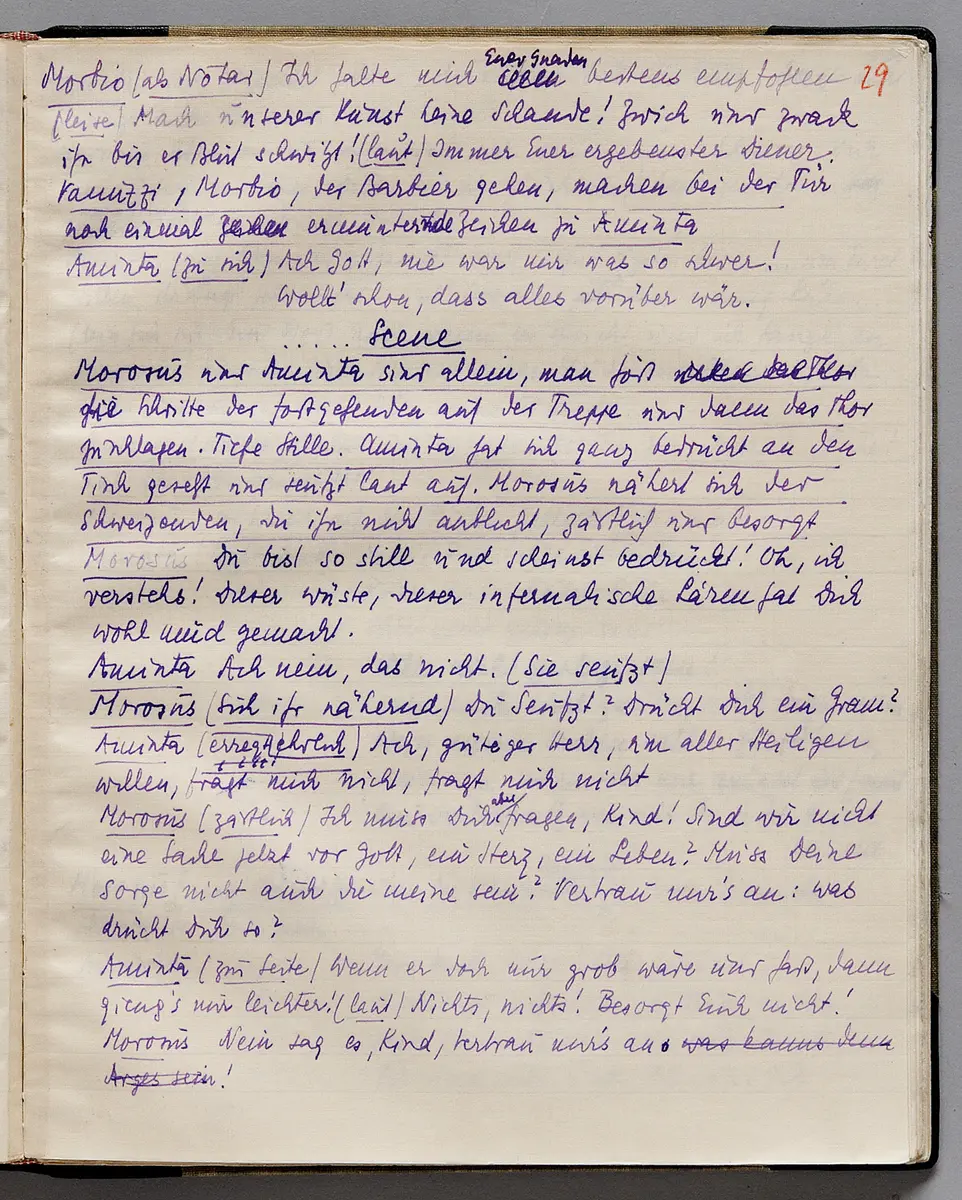 Morbio (als Notar) Ich halte mich Euer Gnaden bestens empfohlen 29
(leise) Mach unserer Kunst keine Schande! Zwick und zwack
ihn bis er Blut schwitzt! (laut) Immer Euer ergebenster Diener.
Vanuzzi, Morbio, der Barbier gehen, machen bei der Tür
noch einmal Zeichen ermunternde Zeichen zu Aminta
Aminta (zu sich) Ach Gott, nie war mir was so schwer!
Wollt' schon, dass alles vorüber wär.
..... Scene
Morosus und Aminta sind allein, man hört
die Schritte der fortgehenden auf der Treppe und dann das Thor
zuschlagen. Tiefe Stille. Aminta hat sich ganz bedrückt an den
Tisch gesetzt und seufzt laut auf. Morosus nähert sich der
Schweigenden, die ihn nicht anblickt, zärtlich und besorgt
Morosus Du bist so still und scheinst bedrückt! Oh, ich
verstehs! Dieser wüste, dieser infernalische Lärm hat Dich
wohl müd gemacht.
Aminta Ach nein, das nicht. (Sie seufzt)
Morosus (Sich ihr nähernd) Du Seufzt? Drückt Dich ein Gram?
Aminta (erregt, ehrlich) Ach, gütiger Herr, um aller Heiligen
willen, fragt mich nicht, fragt mich nicht
Morosus (zärtlich) Ich muss Dich aber fragen, Kind! Sind wir nicht
eine Sache jetzt vor Gott, ein Herz, ein Leben? Muss Deine
Sorge nicht auch die meine sein? Vertrau mir's an: was
drückt Dich so?
Aminta (zur Seite) Wenn er doch nur grob wäre und hart, dann
gieng's mir leichter! (laut) Nichts, nichts! Besorgt Euch nicht!
Morosus Nein sag es, Kind, vertrau mir's an was kanns denn
Arges sein!